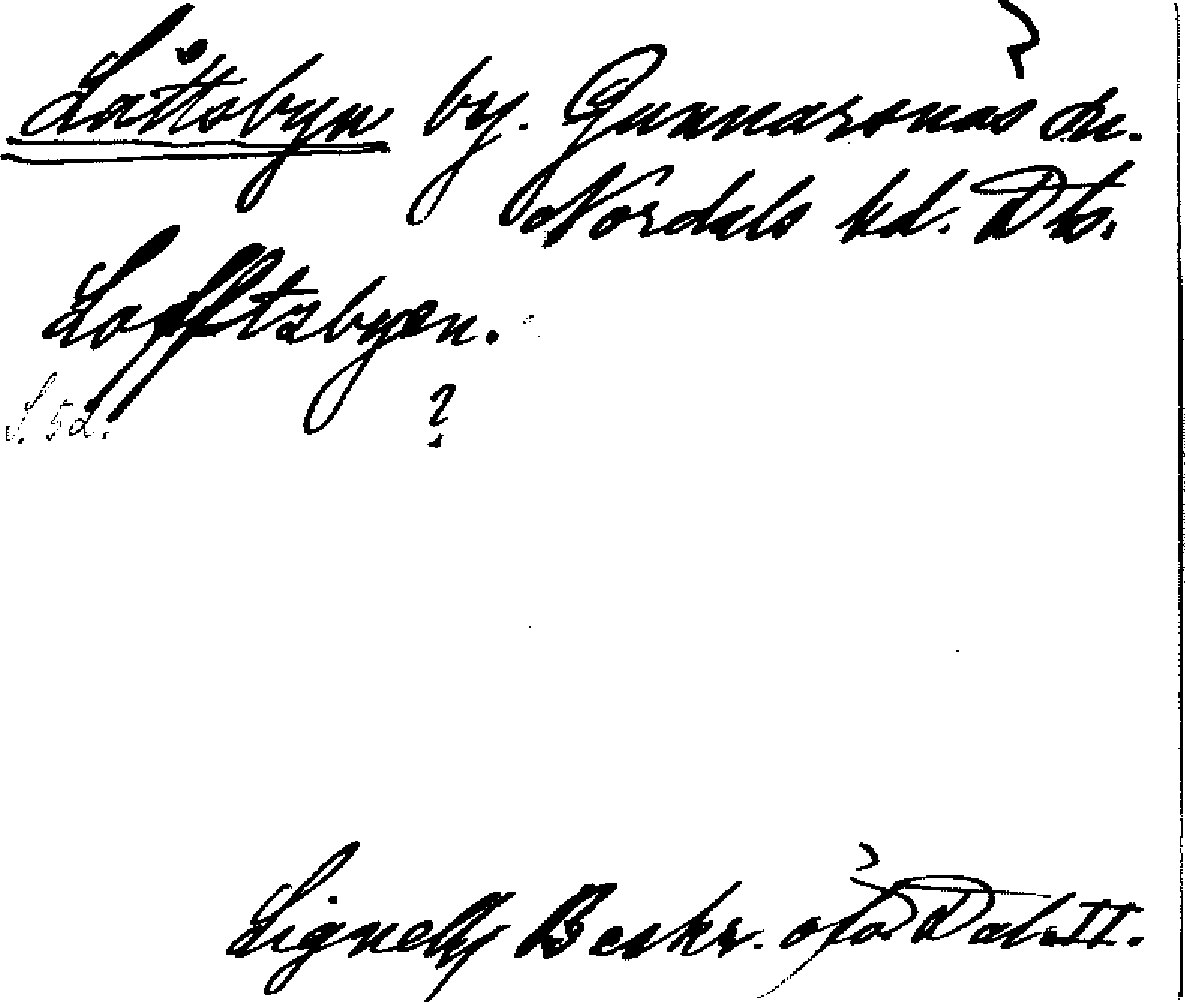 Låttsbyn by. Gunnarsnäs sn.
Nordals hd. Dls.
Lofftzbyen.
S. 52. ?
Lignell, Beskr. öfv. Dal. II.